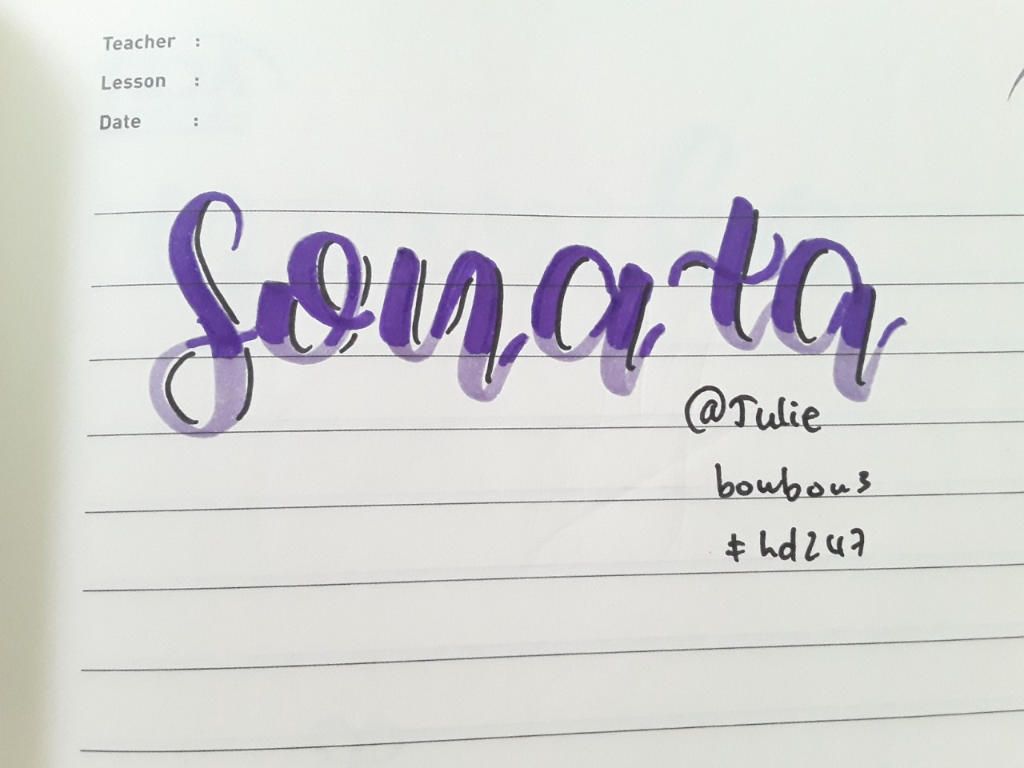 Teacher :
Lesson :
Date :
Sonata
@Julie
boubou3
#hd247